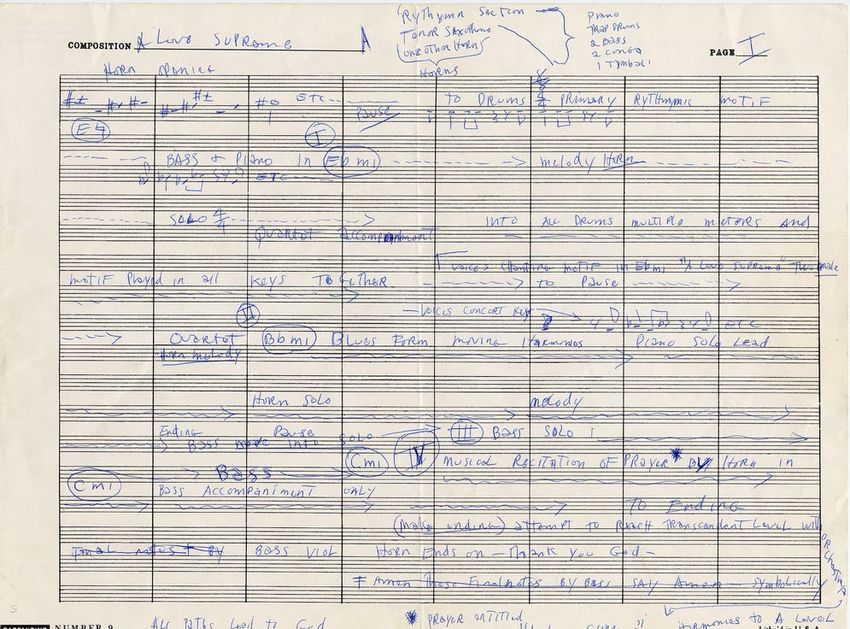 "Rythymn Section
Tenor Saxophone
one other Horn
Piano
TRAP DRUMS
2 BASS
2 CONGA
1 TYMBALI
COMPOSITION A Love Supreme A
PAGE I
Horn
HORNS
ETC
PAUSE
TO DRUMS PRIMARY RYTHYMIC MOTIF
I
BASS & PIANO IN Ebmi
melody Horn
ETC
SOLO 4/4
INTO ALL DRUMS MULTIPLE METERS AND
Quartet accompaniment
VOICES CHANTING MOTIF IN Ebmi "A LOVE SUPREME"
MOTIF Played in all keys Together
TO PAUSE
VOICES CONCERT KEY
ETC
II
Quartet Bbmi Blues Form moving Harmonies Piano Solo Lead
Horn melody
Horn Solo
melody
Ending Pause
BASS move into SOLO
III BASS SOLO 1
Cmi IV
MUSICAL RECITATION OF PRAYER* BY HORN IN
Cmi
BASS
BASS ACCOMPANIMENT ONLY
TO Ending
(make ending) attempt to Reach Transcendent Level with
ORCHESTRA
BASS VIOL
Horn Ends on — Thank you God —
Amen These Final notes BY BASS SAY Amen — Symbolically
S
NUMBER 9
ALL PATHS Lead To God
* PRAYER entitled
HARMONIES TO A LEVEL